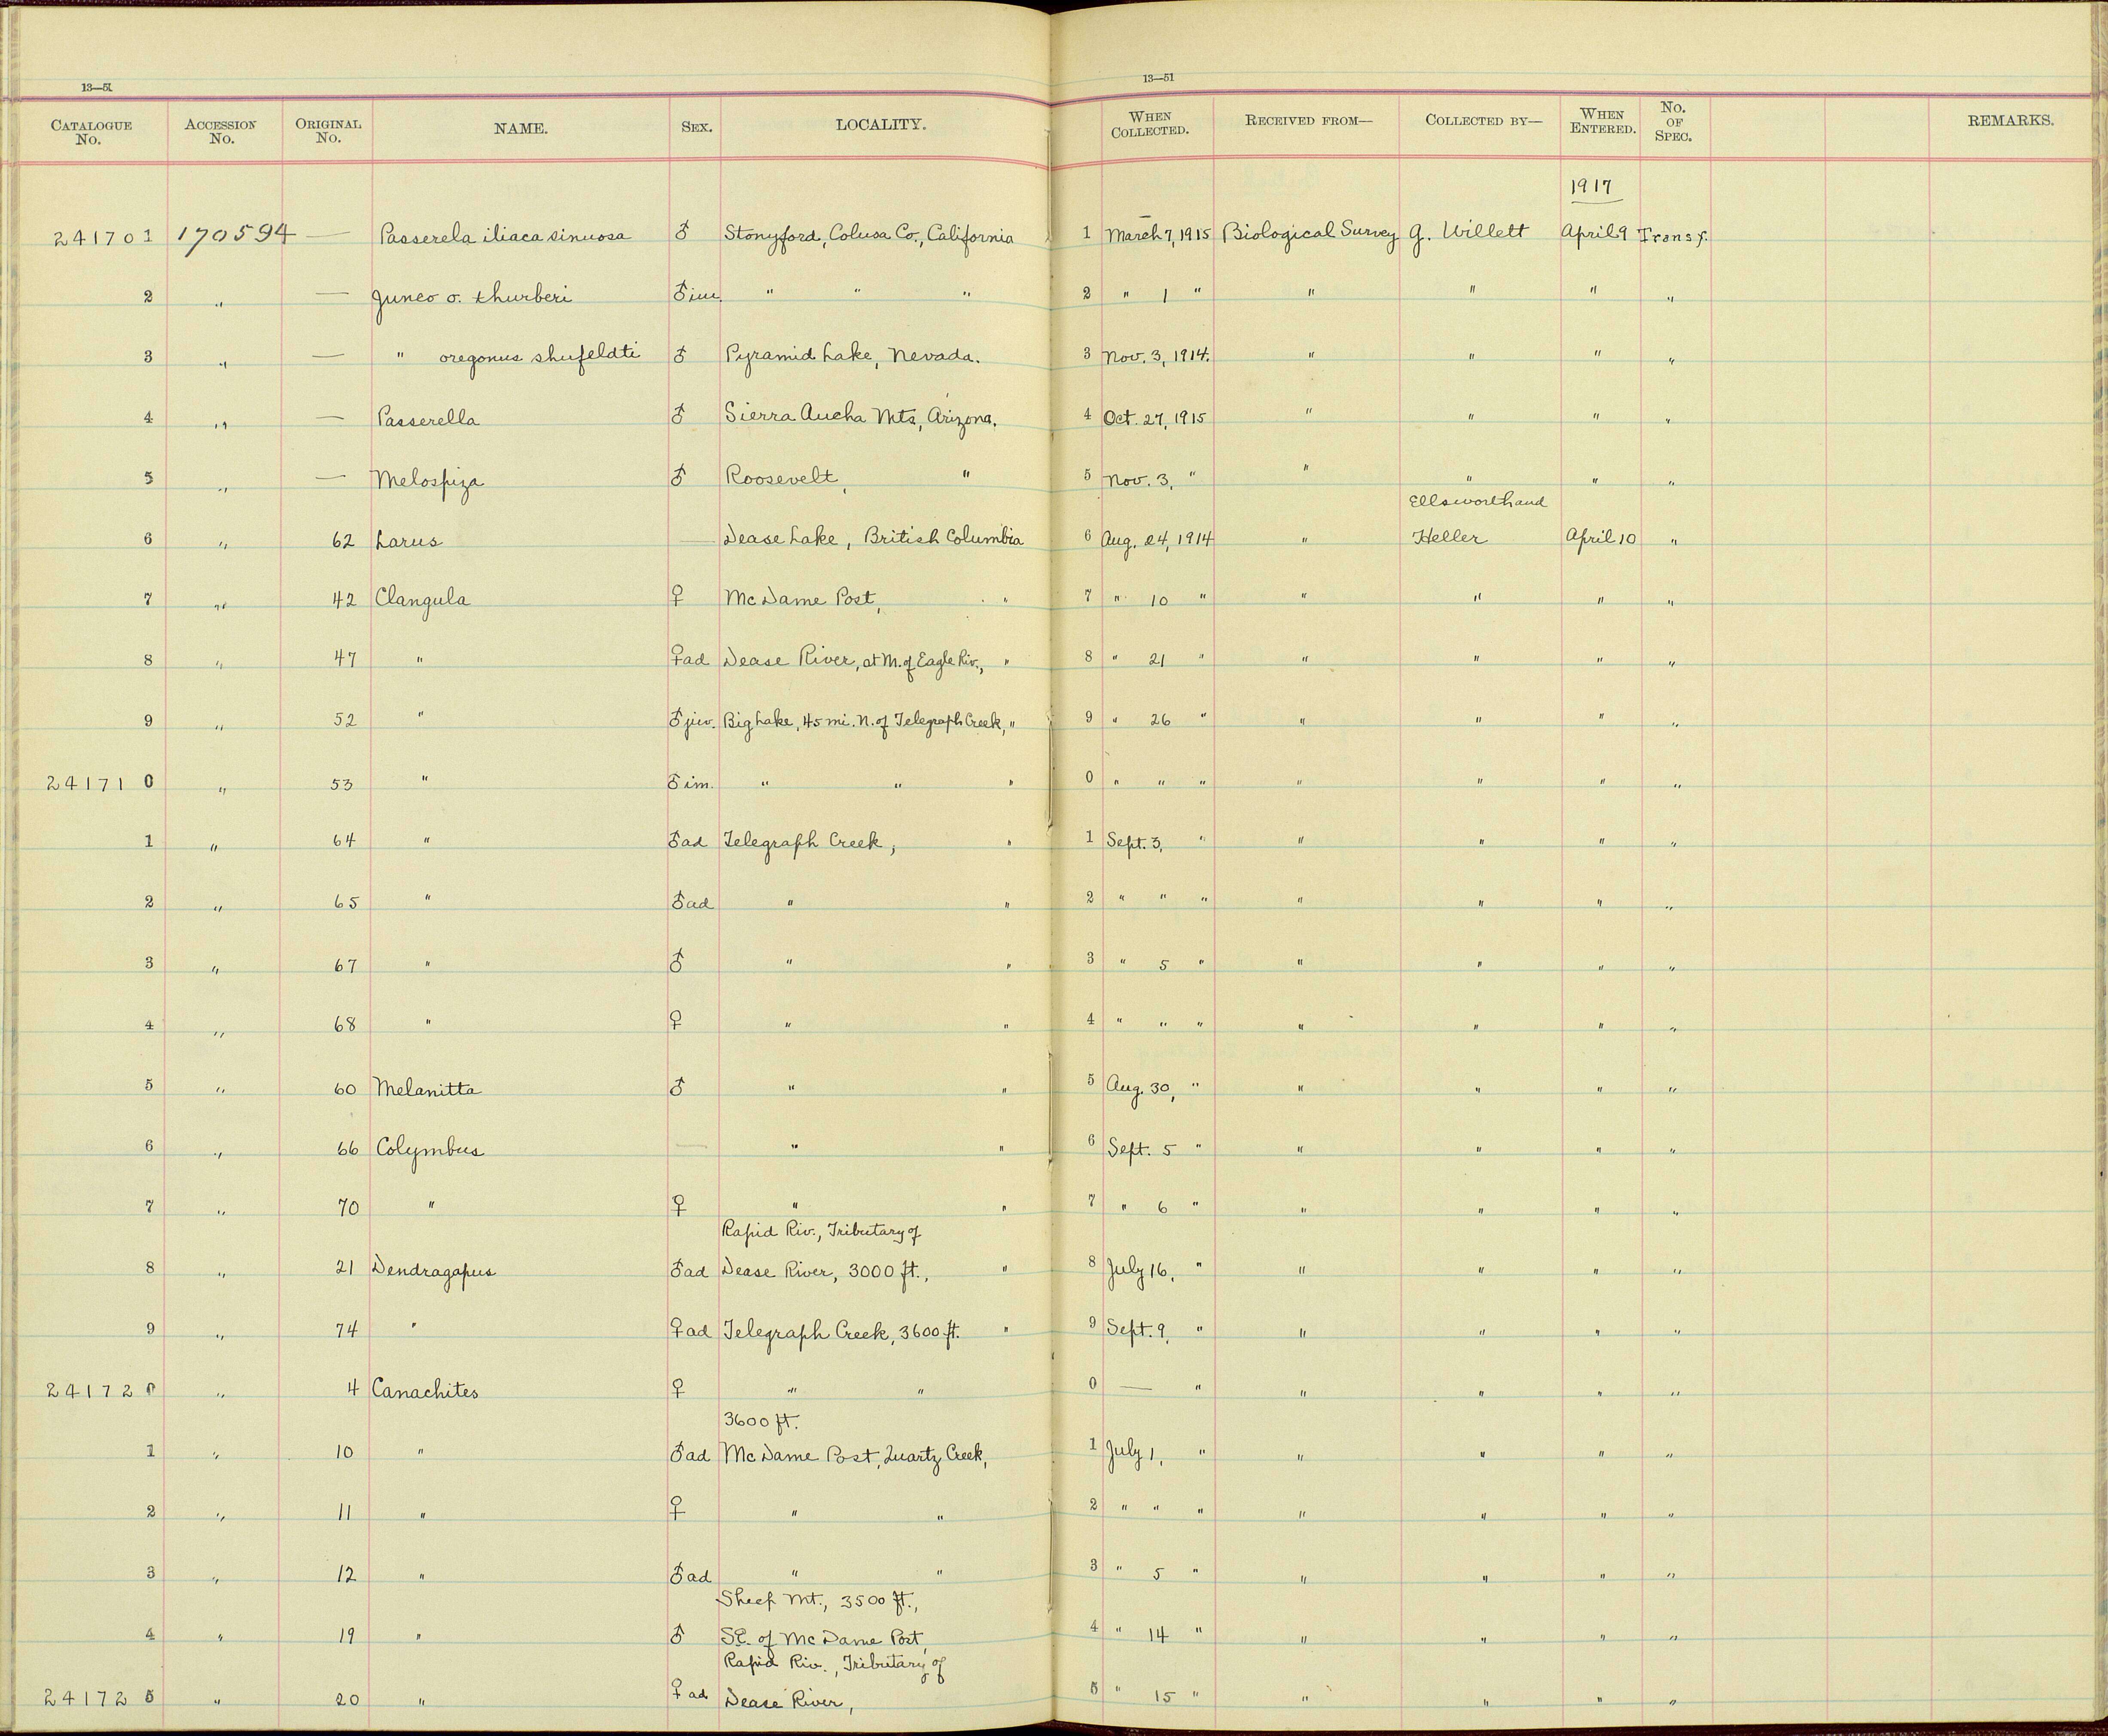 13—51
13—51
CATALOGUE No. ACCESSION No. ORIGINAL No. NAME. SEX. LOCALITY. WHEN COLLECTED. RECEIVED FROM— COLLECTED BY— WHEN ENTERED. No. OF SPEC. REMARKS.
1917
241701 170594 — Passerela iliaca sinuosa ♂ Stonyford, Colusa Co., California 1 March 7, 1915 Biological Survey G. Willett April 9 Transf.
2 " — Junco o. thurberi ♂ im. " " " 2 " 1 " " " " "
3 " — " oregonus shufeldti ♂ Pyramid Lake, Nevada. 3 Nov. 3, 1914. " " " "
4 " — Passerella ♂ Sierra Aucha Mts, Arizona. 4 Oct. 27, 1915 " " " "
5 " — Melospiza ♂ Roosevelt, " 5 Nov. 3, " " " " "
Ellsworth and
6 " 62 Larus — Dease Lake, British Columbia 6 Aug. 24, 1914 " Heller April 10 "
7 " 42 Clangula ♀ McDame Post, " 7 " 10 " " " " "
8 " 47 " ♀ ad Dease River, at M. of Eagle Riv., " 8 " 21 " " " " "
9 " 52 " ♂ juv. Big Lake, 45 mi. N. of Telegraph Creek, " 9 " 26 " " " " "
241710 " 53 " ♂ im. " " " 0 " " " " " " "
1 " 64 " ♂ ad Telegraph Creek, " 1 Sept. 3, " " " " "
2 " 65 " ♂ ad " " 2 " " " " " " "
3 " 67 " ♂ " " 3 " 5 " " " " "
4 " 68 " ♀ " " 4 " " " " " " "
5 " 60 Melanitta ♂ " " 5 Aug. 30, " " " " "
6 " 66 Colymbus — " " 6 Sept. 5 " " " " "
7 " 70 " ♀ " " 7 " 6 " " " " "
Rapid Riv., Tributary of
8 " 21 Dendragapus ♂ ad Dease River, 3000 ft., " 8 July 16, " " " " "
9 " 74 " ♀ ad Telegraph Creek, 3600 ft. " 9 Sept. 9, " " " " "
241720 " 4 Canachites ♀ " " 0 — " " " " "
3600 ft.
1 " 10 " ♂ ad McDame Post, Quartz Creek, 1 July 1, " " " " "
2 " 11 " ♀ " " 2 " " " " " " "
3 " 12 " ♂ ad " " 3 " 5 " " " " "
Sheep Mt., 3500 ft.,
4 " 19 " ♂ SE. of McDame Post, 4 " 14 " " " " "
Rapid Riv., Tributary of
241725 " 20 " ♀ ad Dease River, 5 " 15 " " " " "